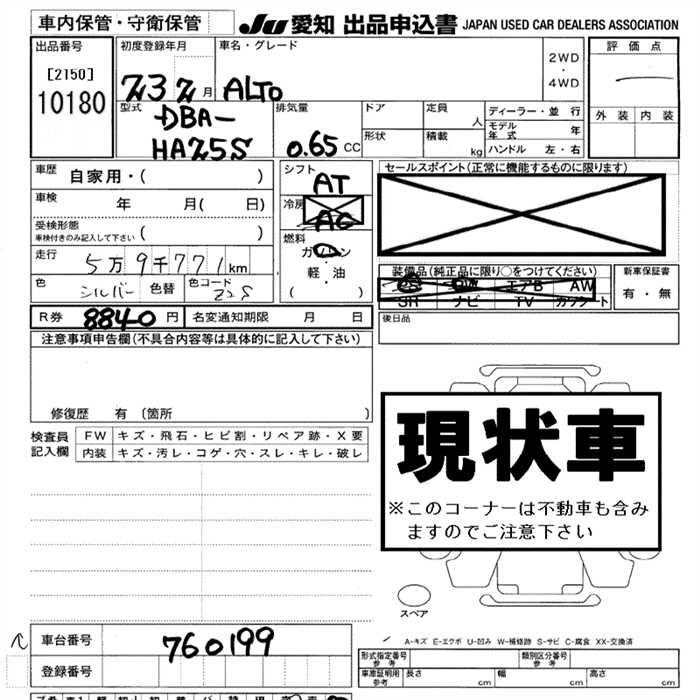 車内保管・守衛保管
JU 愛知 出品申込書 JAPAN USED CAR DEALERS ASSOCIATION
出品番号
[2150]
10180
初度登録年月
23 2 月
車名・グレード
ALTO
2WD
・
4WD
評価点
外装 内装
型式
DBA-
HA25S
排気量
0.65 CC
ドア
定員
人
形状
積載
kg
ディーラー・並行
モデル年式 年
ハンドル 左・右
車歴
自家用・( )
車検
年 月( 日)
受検形態
車検付きのみ記入して下さい ( )
走行
5万9千771km
色
シルバー
色替
色コード
Z2S
シフト
AT
冷房
AC
燃料
ガソリン
・
軽・油
( )
セールスポイント(正常に機能するものに限ります)
装備品(純正品に限り○をつけてください)
PS PW エアB AW
SR ナビ TV カワシート
新車保証書
有・無
R券 8840 円 名変通知期限 月 日
後日品
注意事項申告欄(不具合内容等は具体的に記入して下さい)
修復歴 有 〔箇所 〕
検査員
記入欄
FW キズ・飛石・ヒビ割・リペア跡・X要
内装 キズ・汚レ・コゲ・穴・スレ・キレ・破レ
現状車
※このコーナーは不動車も含み
ますのでご注意下さい
スペア
A-キズ E-エクボ U-凹み W-補修跡 S-サビ C-腐食 XX-交換済
車台番号
760199
登録番号
形式指定番号
参考
類別区分番号
参考
車庫証明用
参考
長さ cm 幅 cm 高さ cm